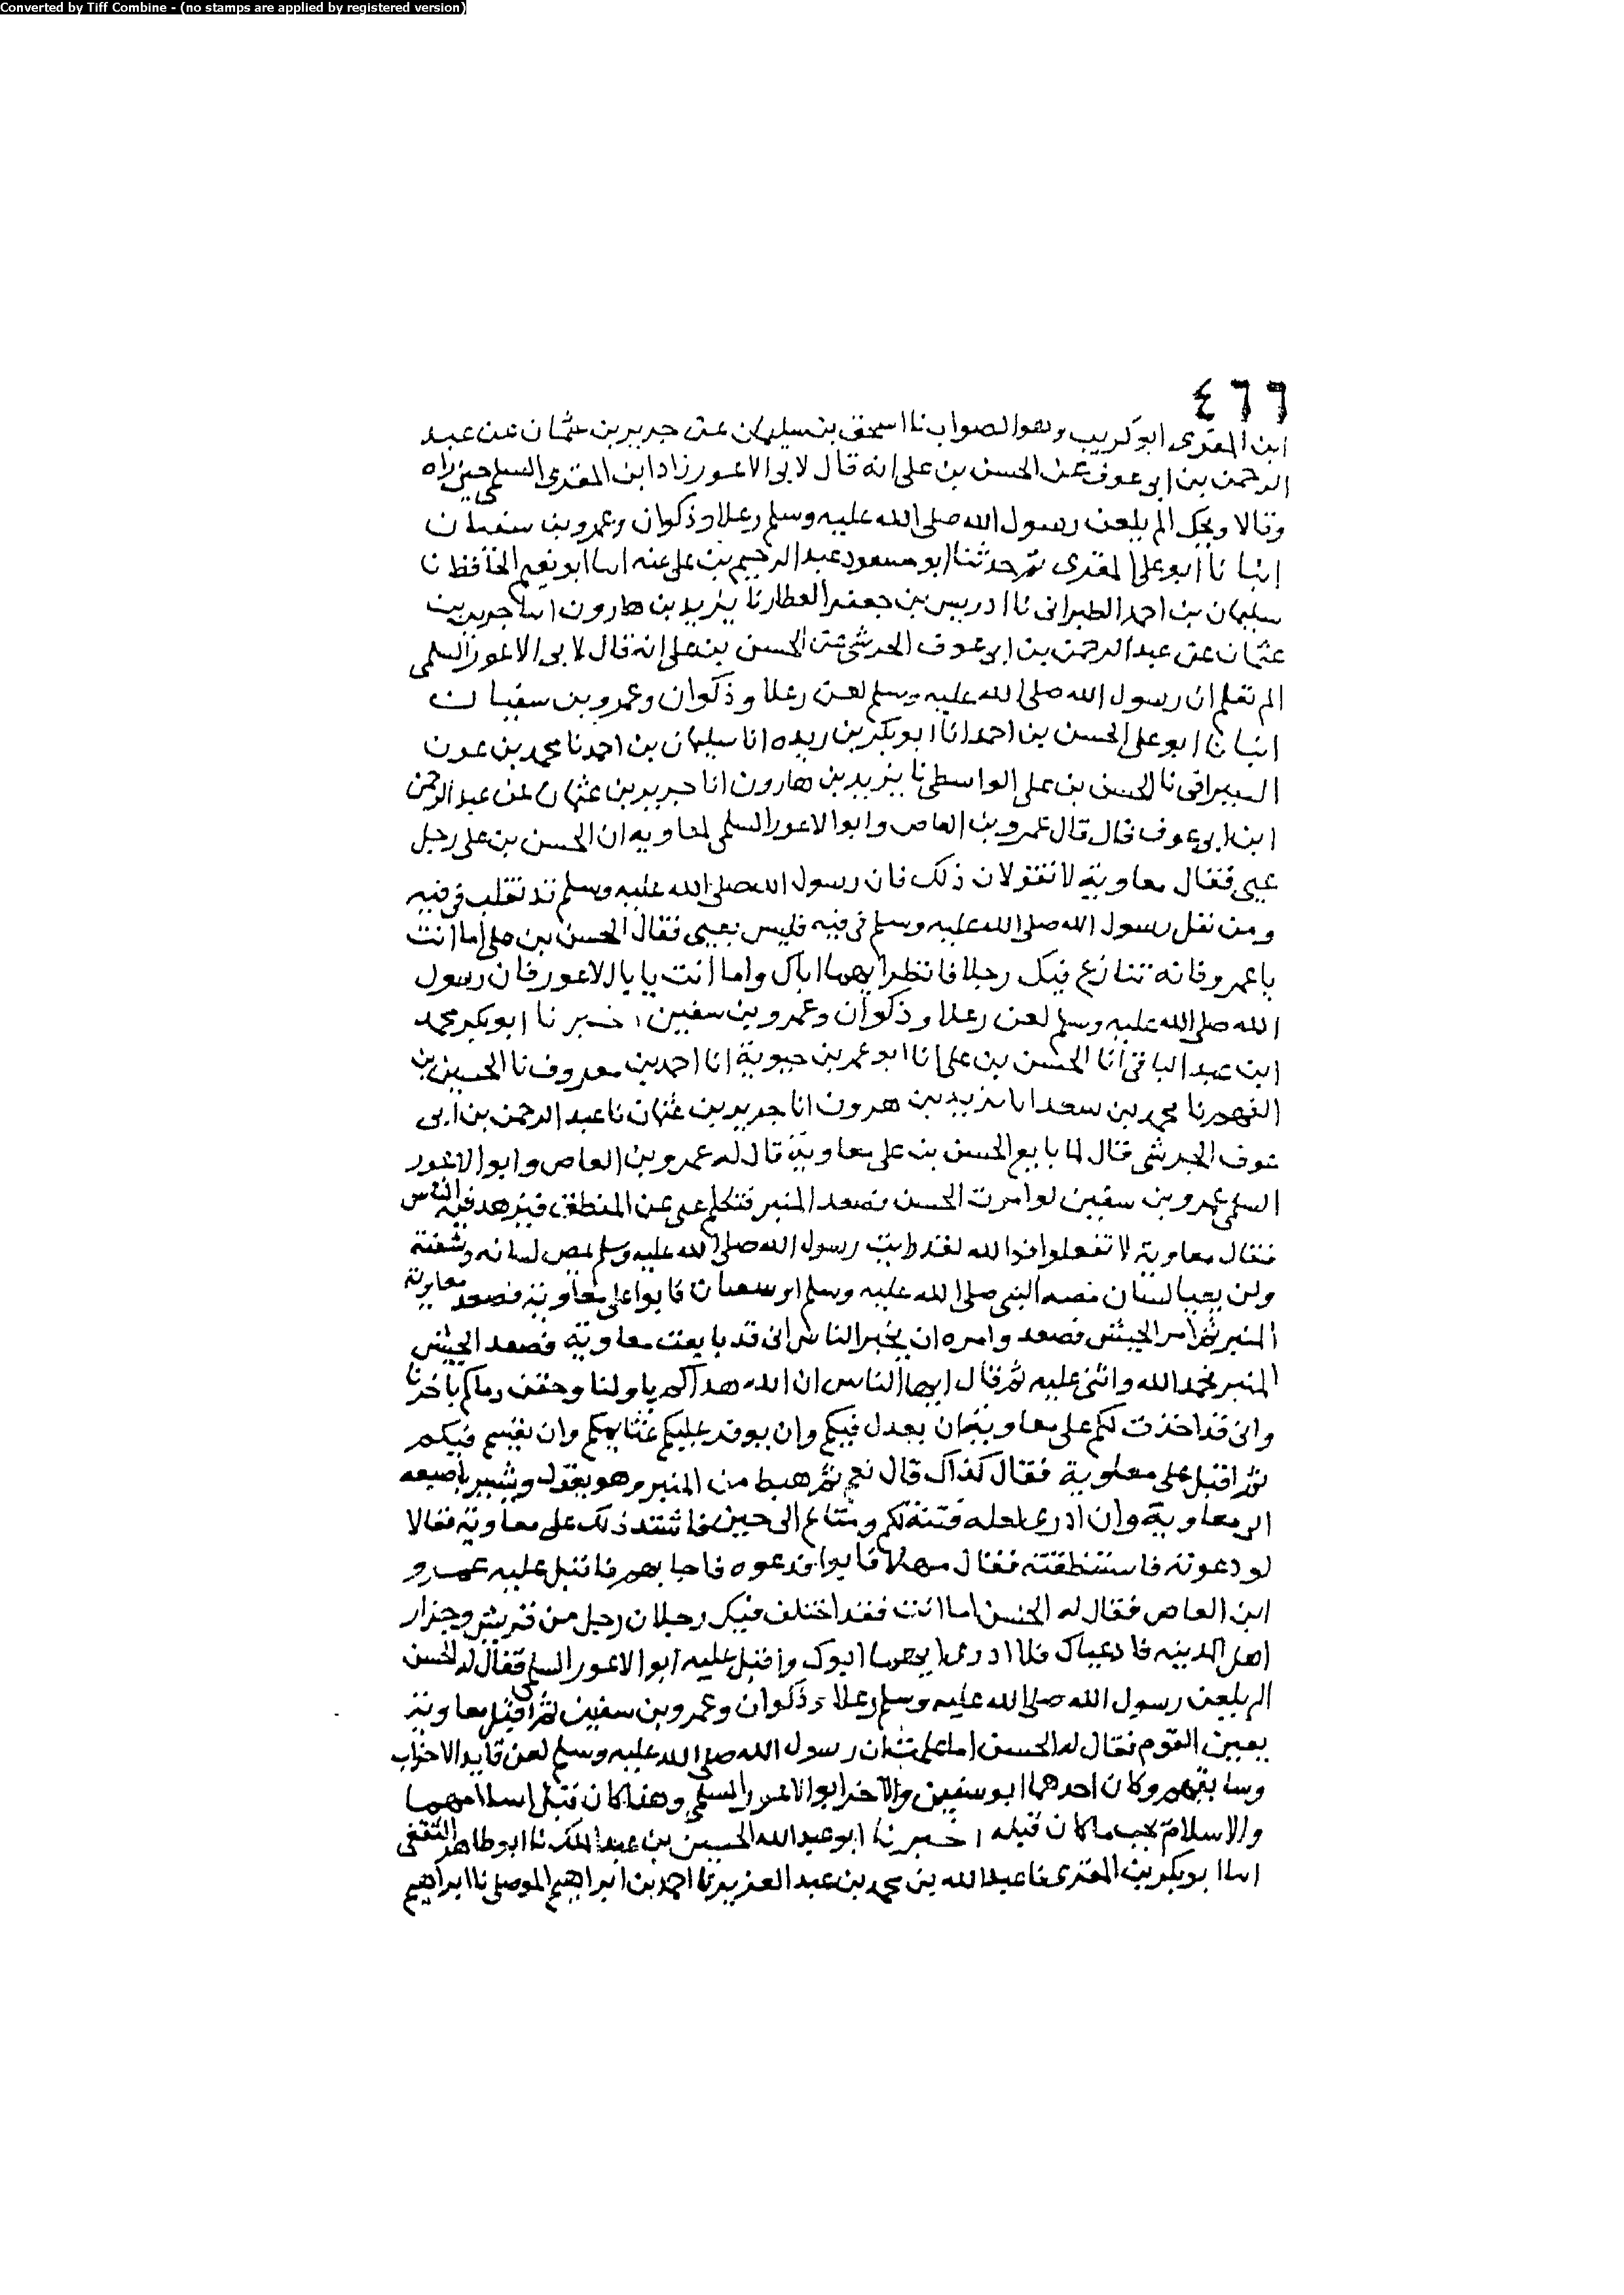 Converted by Tiff Combine - (no stamps are applied by registered version)
٤٦٦
ابن المقرى ابو كريب وهو الصواب نا اسحق بن سليمان عن جرير بن عثمان عن عبد
الرحمن بن ابى عوف عن الحسن بن على انه قال لابو الاعور زاد ابن المقرى السلمى حين راه
وقالا ويحك الم يلعن رسول الله صلى الله عليه وسلم رعلا وذكوان وعمرو بن سفيان
انبانا ابو على المقرى ثم حدثنا ابو مسعود عبد الرحيم بن على عنه انبا ابو نعيم الحافظ نا
سليمان بن احمد الطبرانى نا ادريس بن جعفر العطار نا يزيد بن هارون انبا جرير بن
عثمان عن عبد الرحمن بن ابى عوف الجرشى عن الحسن بن على انه قال لابى الاعور السلمى
الم تعلم ان رسول الله صلى الله عليه وسلم لعن رعلا وذكوان وعمرو بن سفيان
انبانا ابو على الحسن بن احمد انا ابو بكر بن ريده انا سليمان بن احمد نا محمد بن عون
السيرافى نا الحسن بن على الواسطى نا يزيد بن هارون انا حريز بن عثمان عن عبد الرحمن
ابن ابى عوف قال قال عمرو بن العاص وابو الاعور السلمى لمعاويه ان الحسن بن على رجل
عيى فقال معاوية لا تقولان ذلك فان رسول الله صلى الله عليه وسلم قد تفل فى فيه
ومن تفل رسول الله صلى الله عليه وسلم فى فيه فليس بعيى فقال الحسن بن على اما انت
يا عمرو فانه تنازع فيك رجلا فانظر ايهما اباك واما انت يا يا الاعور فان رسول
الله صلى الله عليه وسلم لعن رعلا وذكوان وعمرو بن سفين اخبرنا ابو بكر محمد
ابن عبد الباقى انا الحسن بن على انا ابو عمر بن حيوية انا احمد بن معروف نا الحسين بن
الفهم نا محمد بن سعد انا يزيد بن هرون انا جرير بن عثمان نا عبد الرحمن بن ابى
عوف الجرشى قال لما بايع الحسن بن على معاوية قال له عمرو بن العاص وابو الاعور
السلمى عمرو بن سفين لو امرت الحسن فصعد المنبر فتكلم عيى عن المنطق فيزهد فيه الناس
فقال معاوية لا تفعلوا فوالله لقد رايت رسول الله صلى الله عليه وسلم يمص لسانه وشفته
ولن يعيا لسان مصه النبى صلى الله عليه وسلم او شفتان فابوا على معاوية فصعد معاوية
المنبر ثم امر الحسن فصعد وامره ان يخبر الناس انى قد بايعت معاوية فصعد الحسن
المنبر فحمد الله واثنى عليه ثم قال ايها الناس ان الله هداكم باولنا وحقن دماكم باخرنا
وانى قد اخذت لكم على معاوية ان يعدل فيكم وان يوفر عليكم غنايمكم وان يقسم فيكم
ثم اقبل على معاوية فقال كذاك قال نعم ثم هبط من المنبر وهو يقول ويشير باصبعه
الى معاوية وان ادرى لعله فتنة لكم ومتاع الى حين فاشتد ذلك على معاوية فقالا
لو دعوته فاستنطقته فقال مهلا فابوا فدعوه فاجابهم فاقبل عليه عمرو
ابن العاص فقال له الحسن اما انت فقد اختلف فيك رجلان رجل من قريش وجزار
اهل المدينه فادعياك فلا ادرى ايهما ابوك واقبل عليه ابو الاعور السلمى فقال له الحسن
الم يلعن رسول الله صلى الله عليه وسلم رعلا وذكوان وعمرو بن سفين ثم اقبل معاوية
يعين القوم فقال له الحسن اما علمت ان رسول الله صلى الله عليه وسلم لعن قايد الاحزاب
وسايقهم وكان احدهما ابو سفين والاخر ابو الاعور السلمى وهذا كان قبل اسلامهما
والاسلام يجب ما كان قبله اخبرنا ابو عبد الله الحسين بن عبد الملك نا ابو طاهر الثقفى
انبا ابو بكر بن المقرى نا عبد الله بن محمد بن عبد العزيز نا احمد بن ابراهيم الموصلى نا ابراهيم